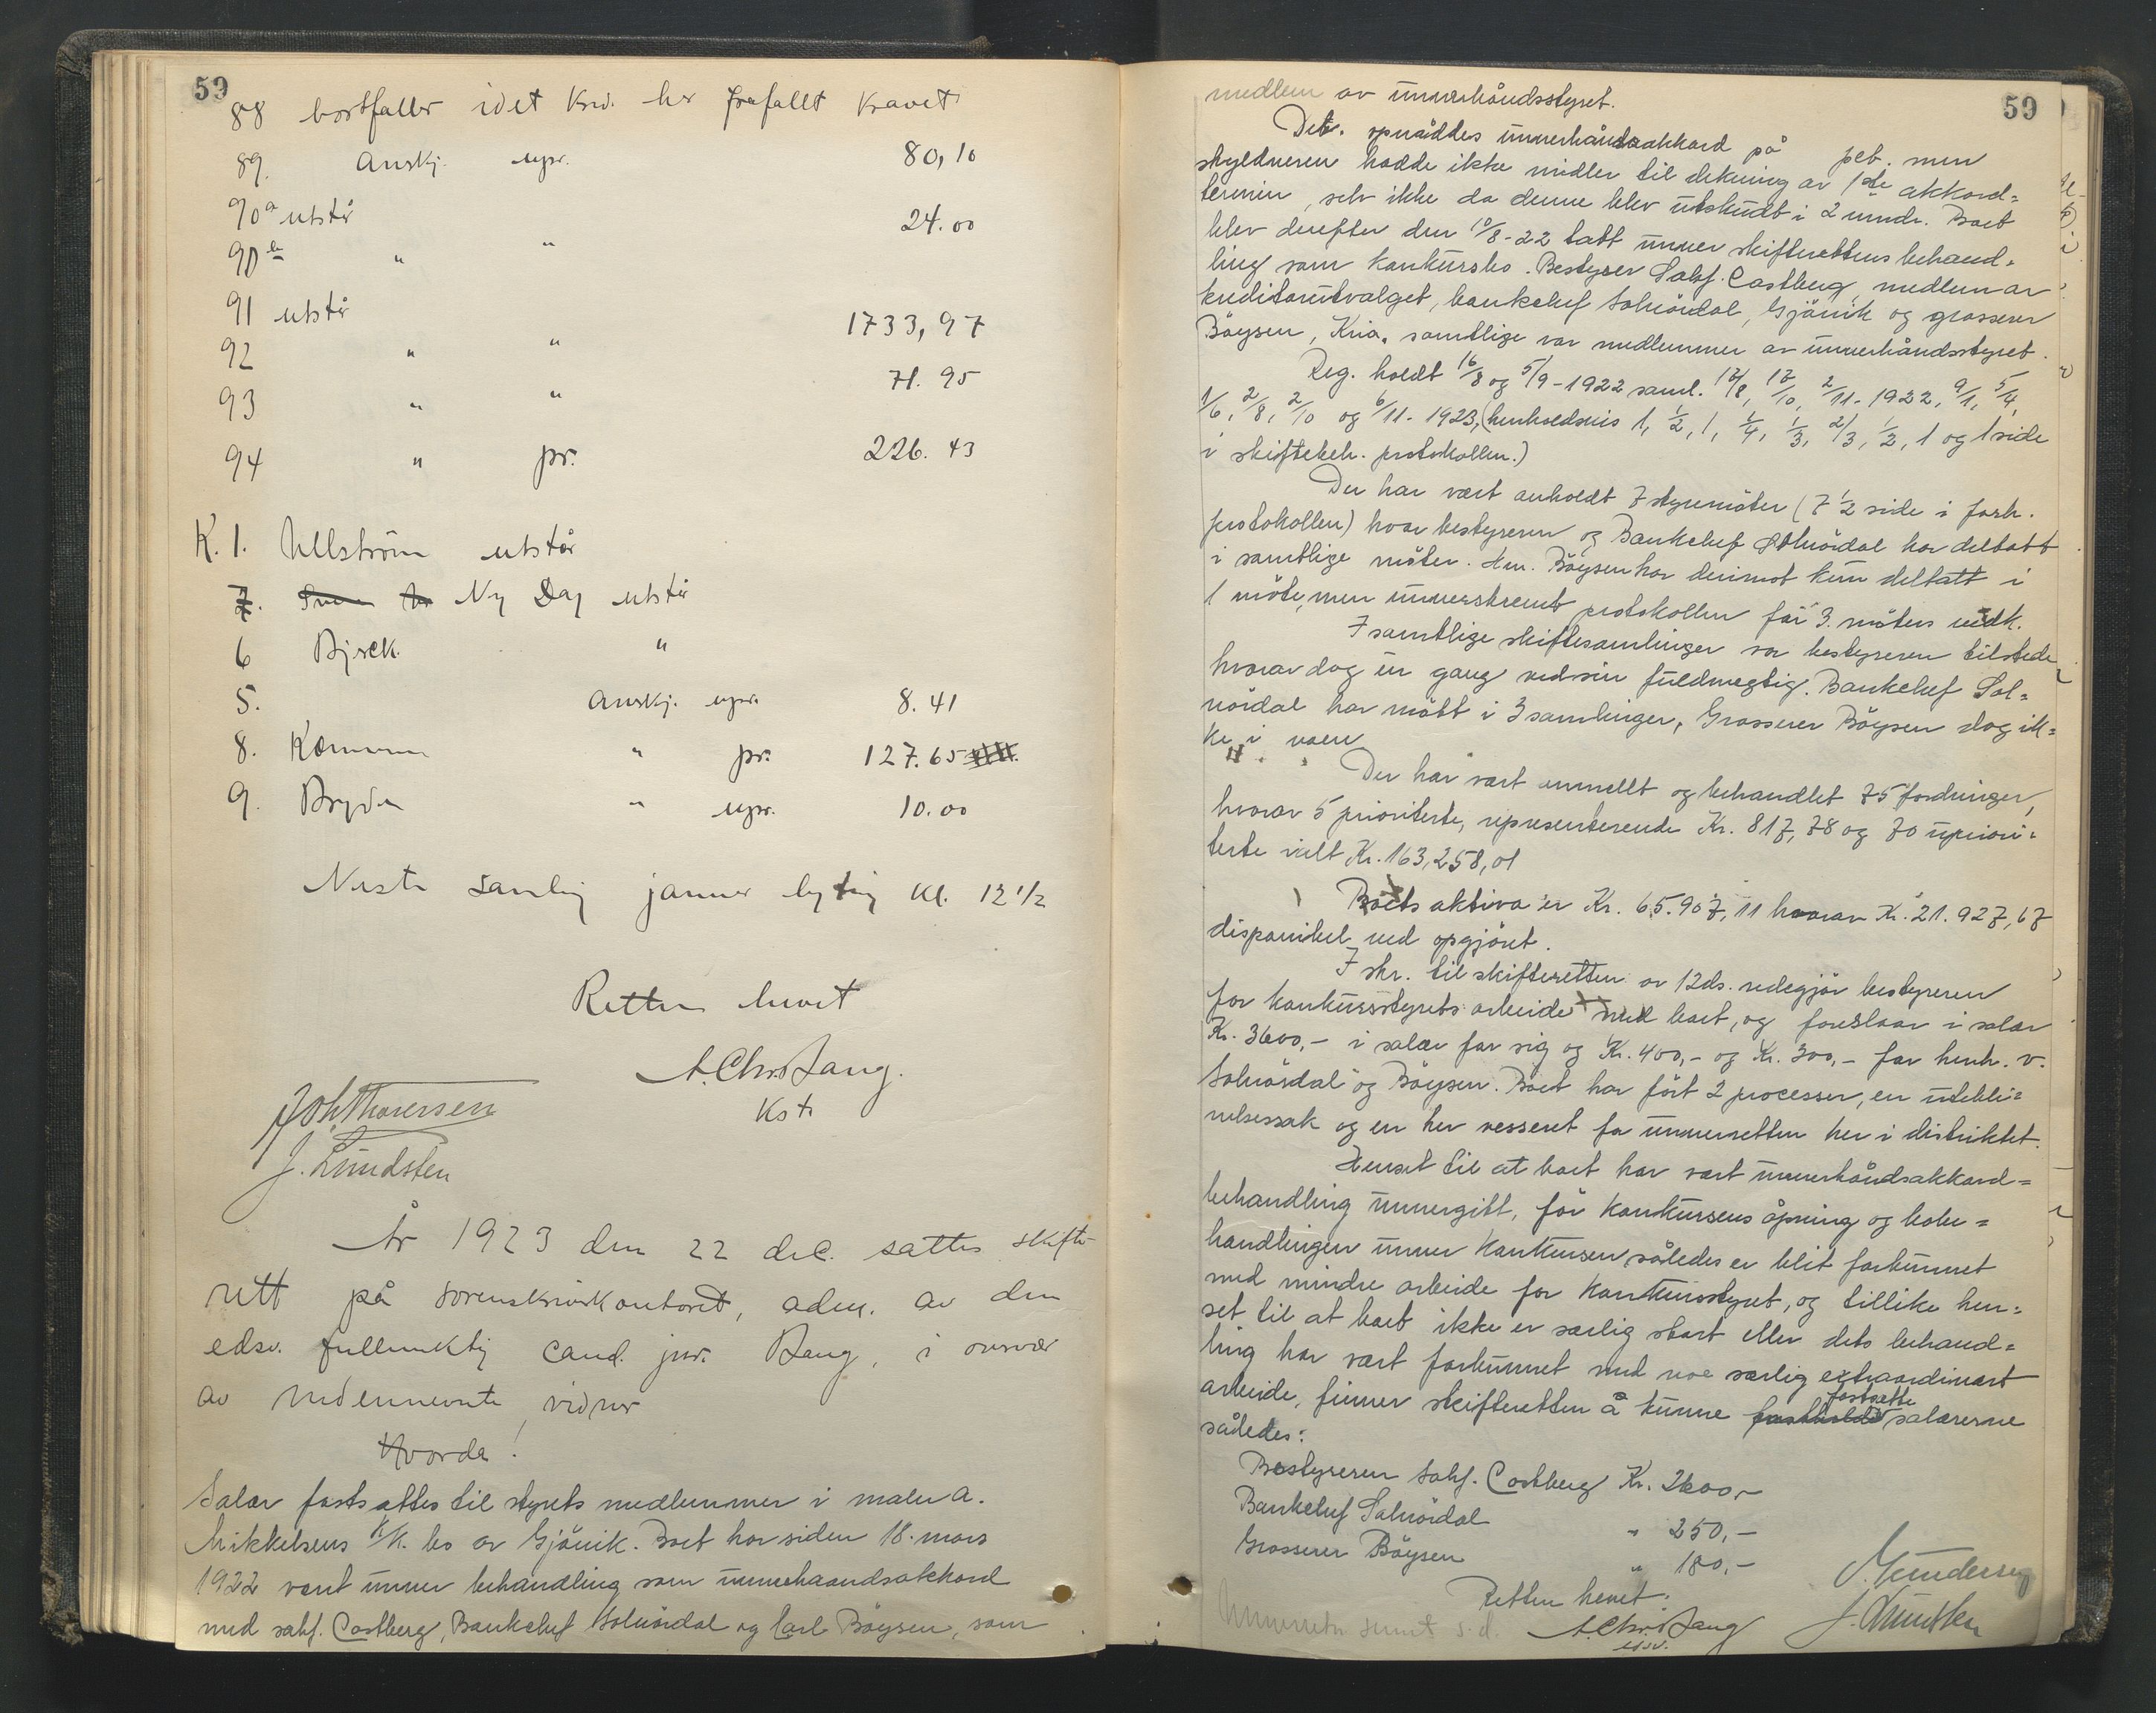 59
88 bortfaller idet kred. her frafallt kravet
89. Anerkj. upr. 80,10
90a utstår 24.00
90b " "
91 utstår 1733,97
92 " "
93 " " 71.95
94 " pr. 226.43
K. 1. Ullström utstår
7. Ny Dag utstår
6 Bjerck. "
5. Anerkj. upr. 8.41
8. Kommun " pr. 127.65
9. Bryde " upr. 10.00
Neste samling januar kl. 12 1/2
Retten hevet
A. Chr. Bang.
Kst.
Joh. Thoresen
J. Lundsten
År 1923 den 22 dec. sattes skifte-
rett på sorenskriverkontoret, adm. av den
edsv. fullmektig cand. jur. Bang, i overvær
av nedennevnte vidner
Hvorda!
Salær fastsattes til styrets medlemmer i maler A.
Mikkelsens K.K. bo av Gjövik. Boet har siden 18. mars
1922 vært unner behandling som unnerhaandsakkord
med sakf. Castberg, Bankchef Solnördal og Carl Böysen, som
59
medlem av unnerhåndsstyret.
Det. opnåddes unnerhåndsakkord på pct. men
skyldneren hadde ikke midler til dekning av 1ste akkord=
termin, selv ikke da denne blev utskudt i 2 mndr. Boet
blev derefter den 10/8-22 tatt unner skifterettens behand=
ling som konkursbo. Bestyrer Sakf. Castberg, medlem av
kreditorutvalget, bankchef Solnördal, Gjövik og grosserer
Böysen, Kria. samtlige var medlemmer av unnerhåndsstyret.
Reg. holdt 16/8 og 5/9-1922 saml. 17/8, 17/10, 2/11-1922, 9/1, 5/4,
1/6, 2/8, 2/10 og 6/11-1923, (henholdsvis 1, 1/2, 1, 1/4, 1/3, 2/3, 1/2, 1 og 1 side
i skiftebeh. protokollen.)
Der har vært avholdt 7 styremöter (7 1/2 side i forh.
protokollen) hvor bestyreren og Bankchef Solnördal har deltatt
i samtlige möter. Hr. Böysen har derimot kun deltatt i
1 möte, men unnerskrevet protokollen for 3. möters vedk.
I samtlige skiftesamlinger var bestyreren tilstede
hvorav dog en gang ved sin fuldmegtig. Bankchef Sol=
nördal har mött i 3 samlinger, Grosserer Böysen dog ik=
ke i noen
Der har vært anmellt og behandlet 75 fordringer,
hvorav 5 prioriterte, representerende Kr. 817,78 og 70 upriori=
terte ialt Kr. 163,258,01
Boets aktiva er Kr. 65.907,11 hvorav Kr. 21.927,67
disponibel ved opgjöret.
I skr. til skifteretten av 12ds. redegjör bestyreren
for konkursstyrets arbeide med boet, og foreslaar i salær
Kr. 3600,- i salær for sig og Kr. 400,- og Kr. 300,- for henh. v.
Solnördal og Böysen. Boet har fört 2 processer, en utebli=
velsessak og en her vesseret for unnerretten her i distriktet.
Henset til at boet har vært unnerhåndsakkord=
behandling unnergitt, för konkursens åpning og bobe=
handlingen unner konkursen således er blit forbunnet
med mindre arbeide for konkursstyret, og tillike hen=
set til at boet ikke er særlig stort eller dets behand=
ling har vært forbunnet med noe særlig extraordinært
arbeide, finner skifteretten å kunne fastsette salærerne
således:
Bestyreren sakf. Castberg Kr. 2600,-
Bankchef Solnördal " 250,-
Grosserer Böysen " 180,-
Retten hevet.
A. Chr. Bang
edsv.
O. Gundersen
J. Lundsten